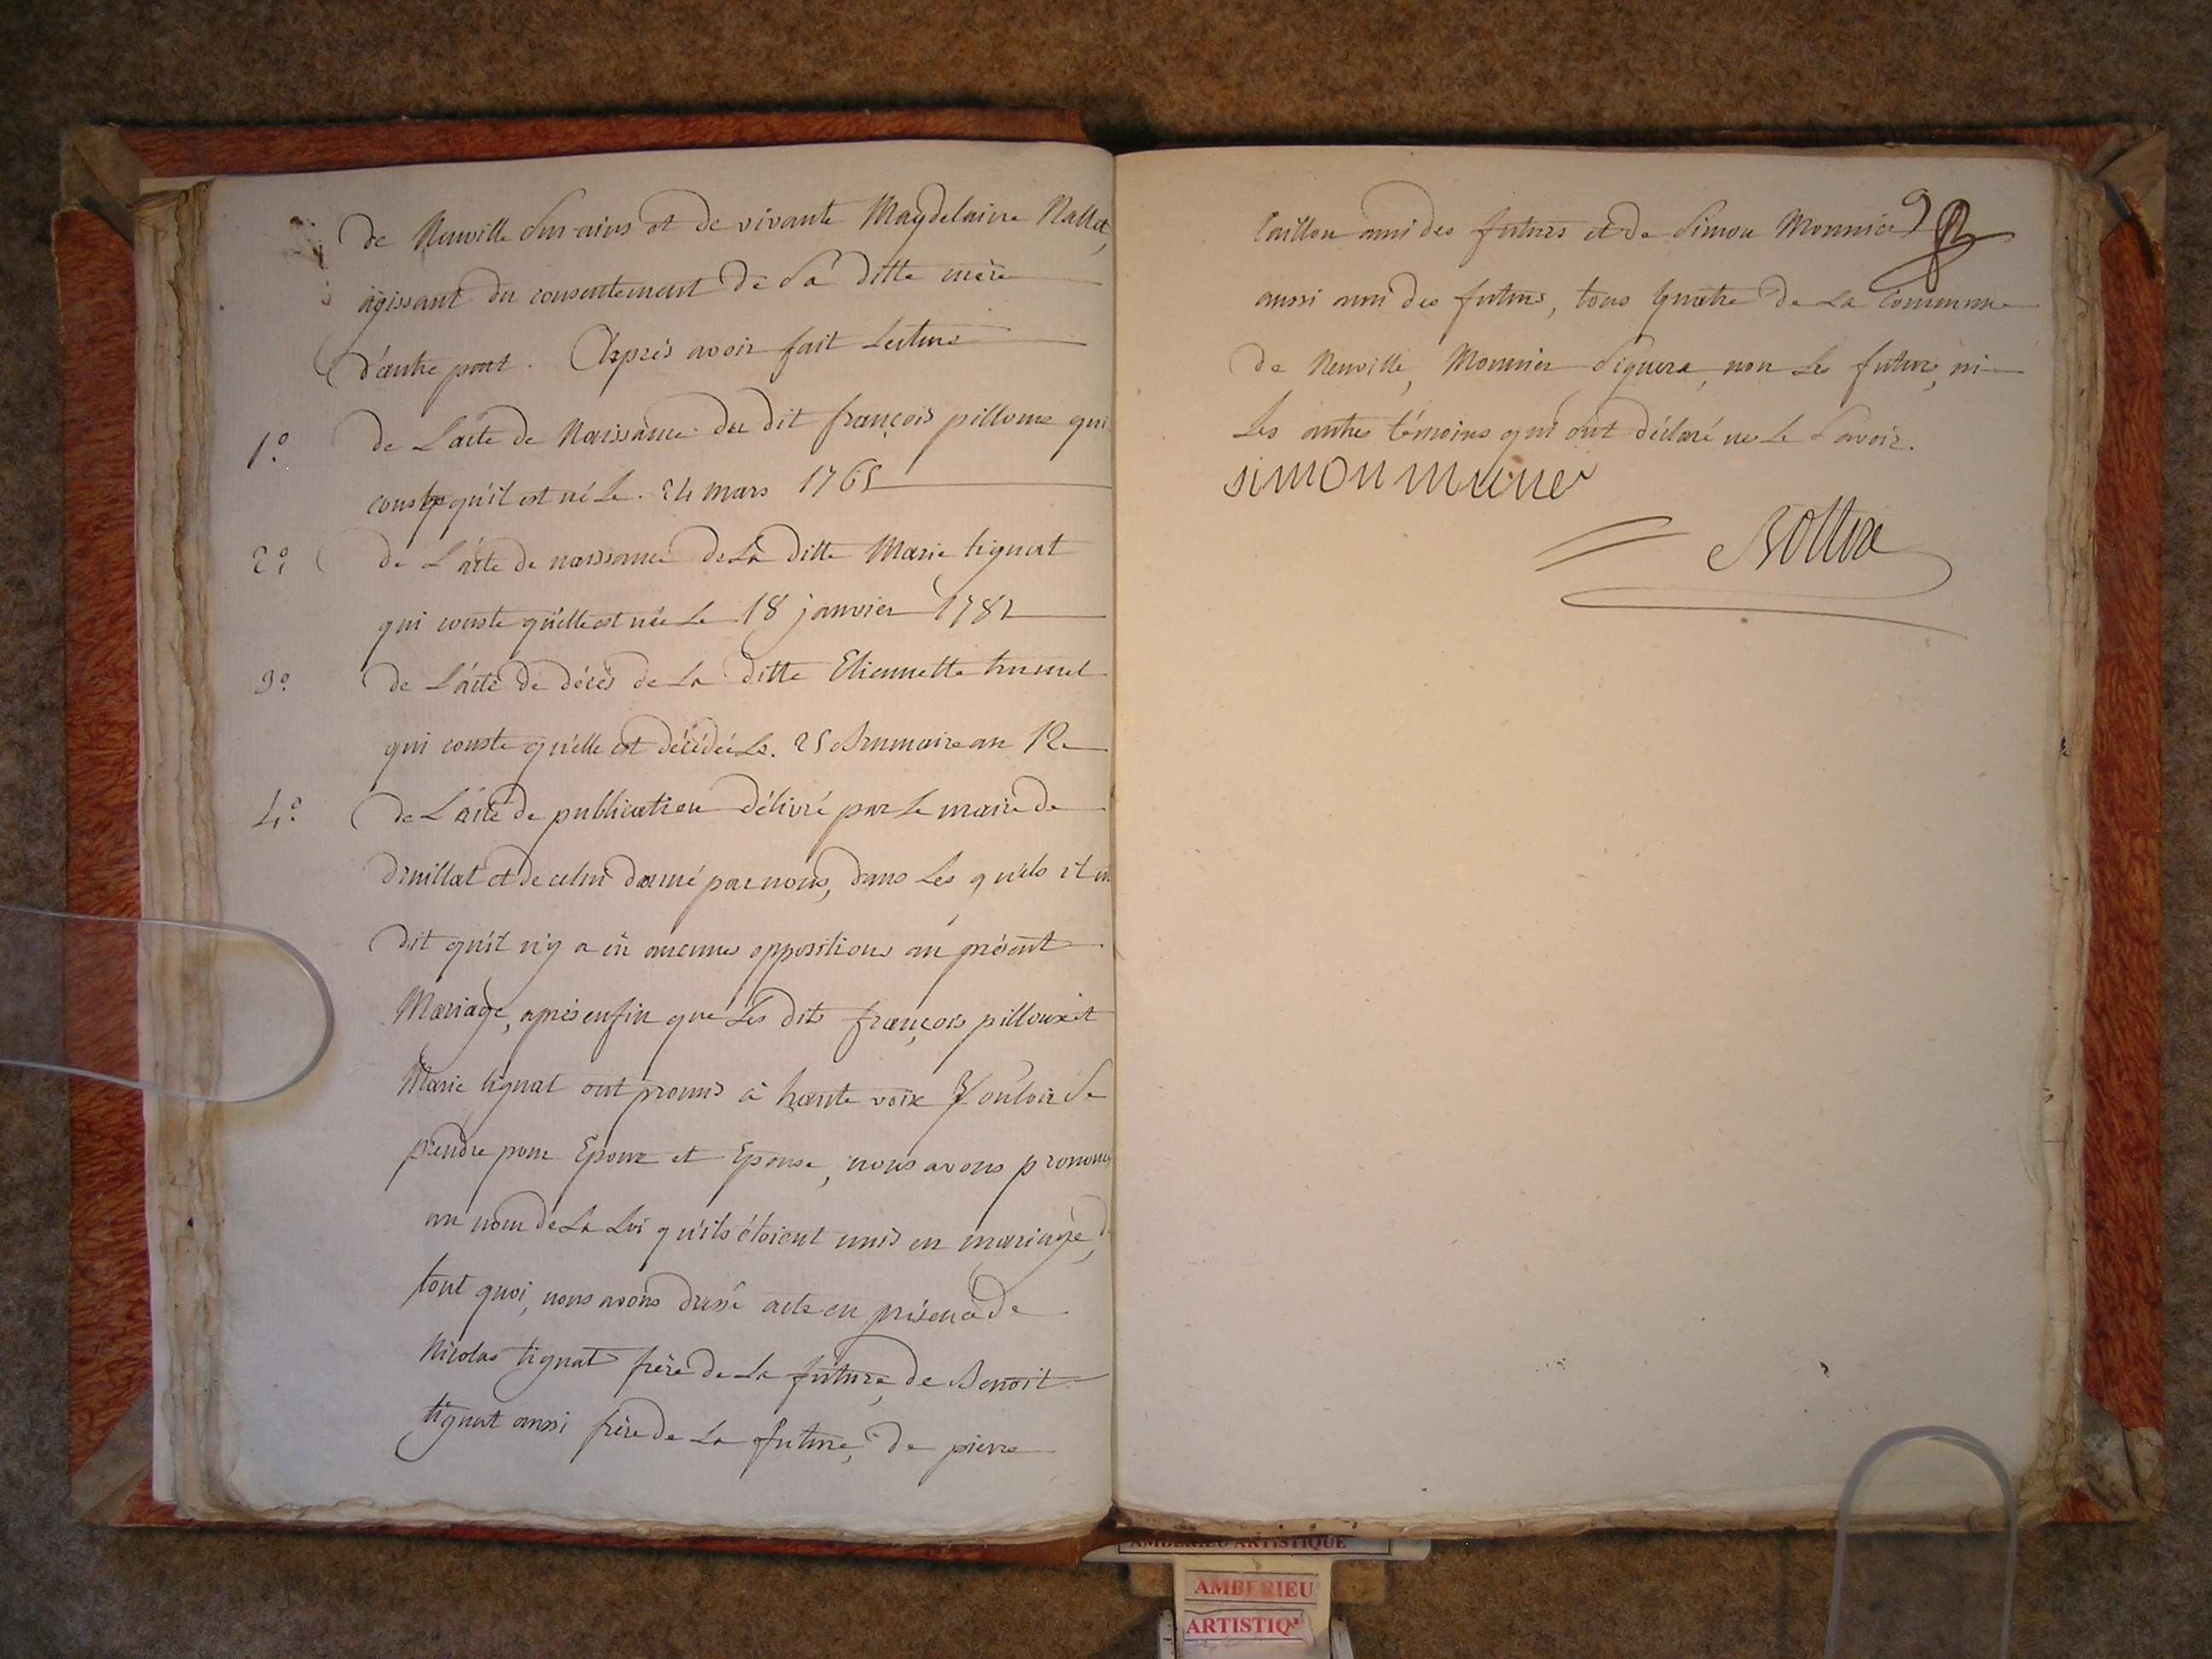 de Neuville sur ains et de vivante Magdelaine Nallet,
agissant du consentement de sa ditte mère
d'autre part. Après avoir fait lecture
1º de L'acte de Naissance du dit françois pilloux qui
conste qu'il est né le 24 mars 1765
2º de L'acte de naissance de La ditte Marie tignat
qui conste qu'elle est née le 18 janvier 1782
3º de L'acte de décès de La ditte Etiennette
qui conste qu'elle est décédée Le 25 Brumaire an 12
4º de L'acte de publication délivré par le maire de
druillat et de celui donné par nous, dans Les quels il est
dit qu'il n'y a eu aucunes oppositions au présent
Mariage, après enfin que Les dits françois pilloux et
Marie tignat ont promis à haute voix vouloir se
prendre pour Epoux et Epouse, nous avons prononcé
au nom de La Loi qu'ils étoient unis en mariage, de
tout quoi, nous avons dressé acte en présence de
Nicolas tignat frère de La future, de Benoit
tignat aussi frère de La future, de pierre
9
ami des futurs et de Simon Monnier
aussi ami des futurs, tous quatre de La Commune
de Neuville, Monnier Signera, non Les futurs, ni
Les autres témoins qui ont déclaré ne Le Savoir.
simon munier
AMBERIEU ARTISTIQUE
AMBERIEU
ARTISTIQ